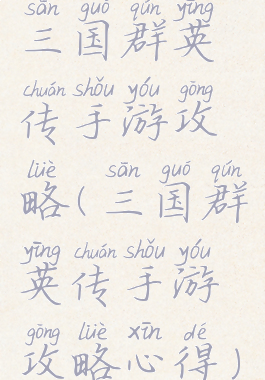 sān guó qún yīng
三国群英
chuán shǒu yóu gōng
传手游攻
lüè sān guó qún
略(三国群
yīng chuán shǒu yóu
英传手游
gōng lüè xīn dé
攻略心得)